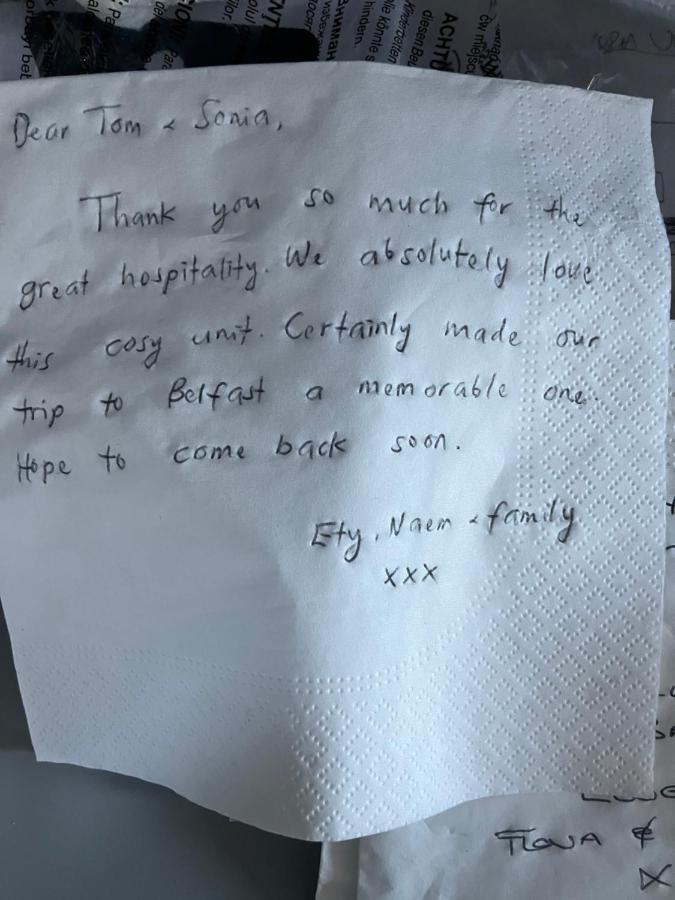 Dear Tom & Sonia,
Thank you so much for the
great hospitality. We absolutely love
this cosy unit. Certainly made our
trip to Belfast a memorable one.
Hope to come back soon.
Ety, Naem & family
xxx
ACHTU
diesen Beu
Kinderbetten
lle könnte s
hindern.
Вниман
FLONA &
X